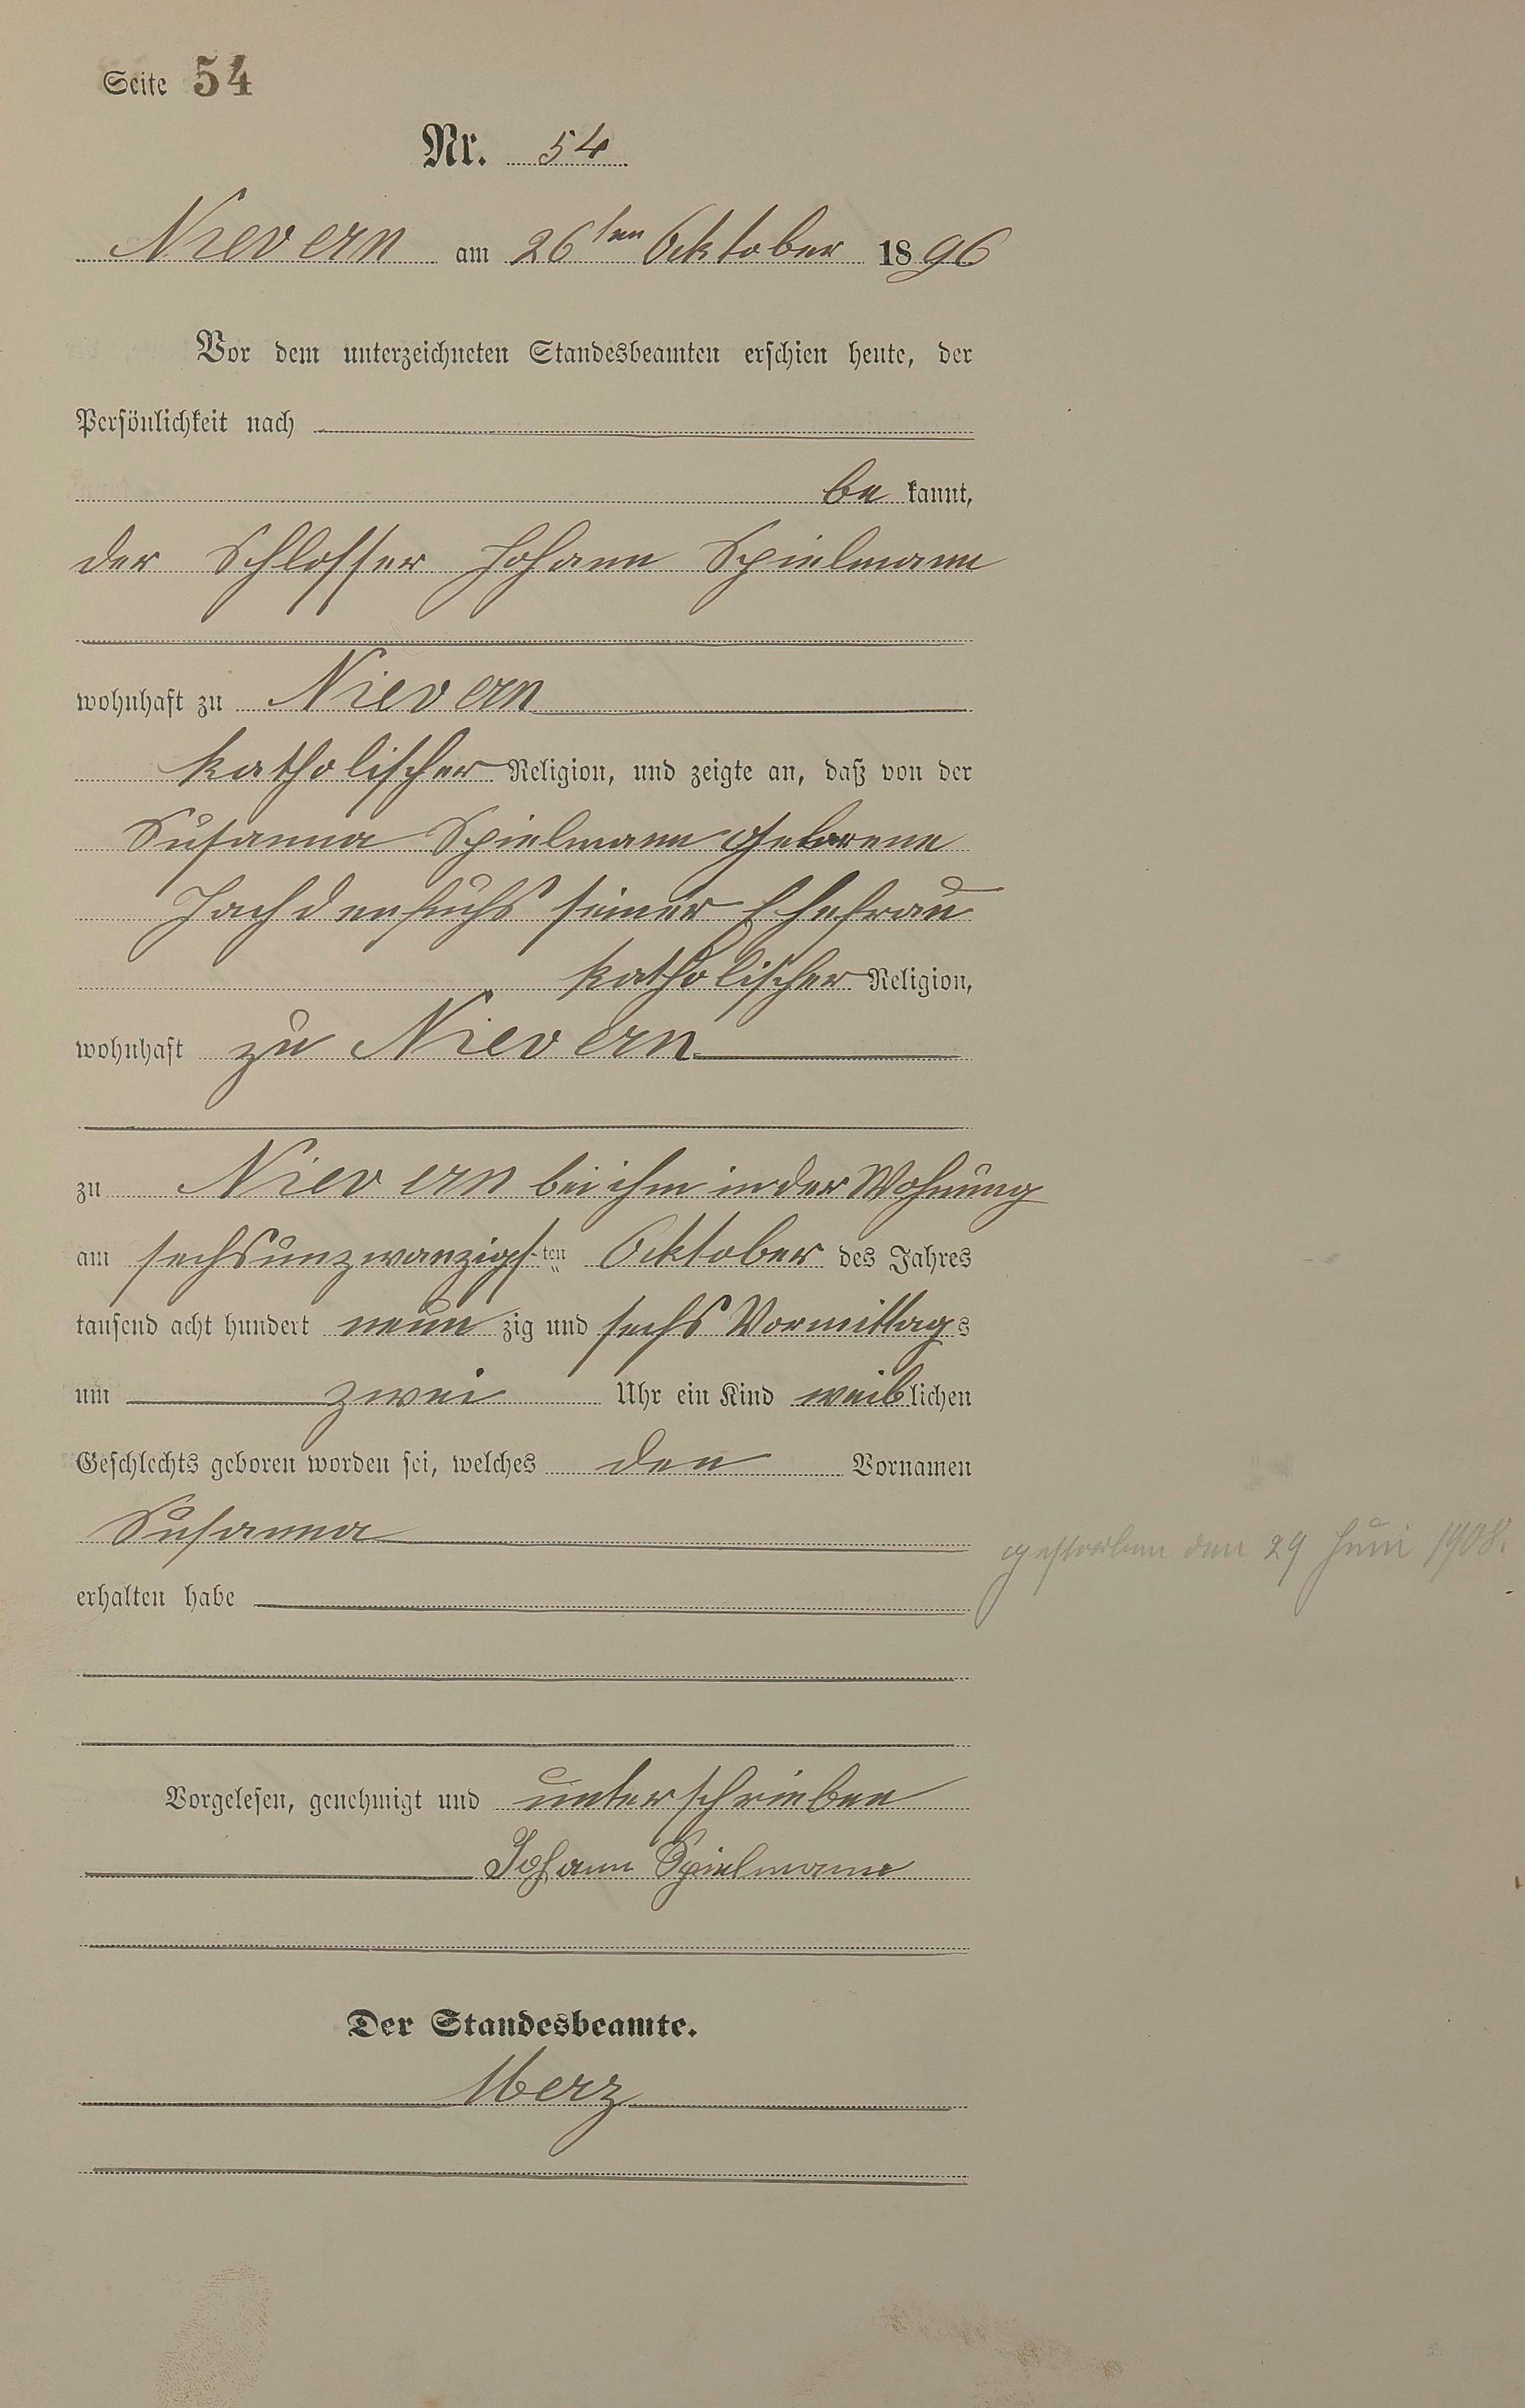 Seite 54
Nr. 54
Nievern am 26ten Oktober 1896
Vor dem unterzeichneten Standesbeamten erschien heute, der
Persönlichkeit nach
be kannt,
der Schlosser Johann Spielmann
wohnhaft zu Nievern
katholischer Religion, und zeigte an, daß von der
Susanna Spielmann geborene
seiner Ehefrau
katholischer Religion,
wohnhaft zu Nievern
zu Nievern bei ihm in der Wohnung
am sechsunzwanzigsten Oktober des Jahres
tausend acht hundert neun zig und sechs Vormittags
um zwei Uhr ein Kind weiblichen
Geschlechts geboren worden sei, welches den Vornamen
Susanna
gestorben den 29 Juni 1908.
erhalten habe
Vorgelesen, genehmigt und unterschrieben
Johann Spielmann
Der Standesbeamte.
Merz